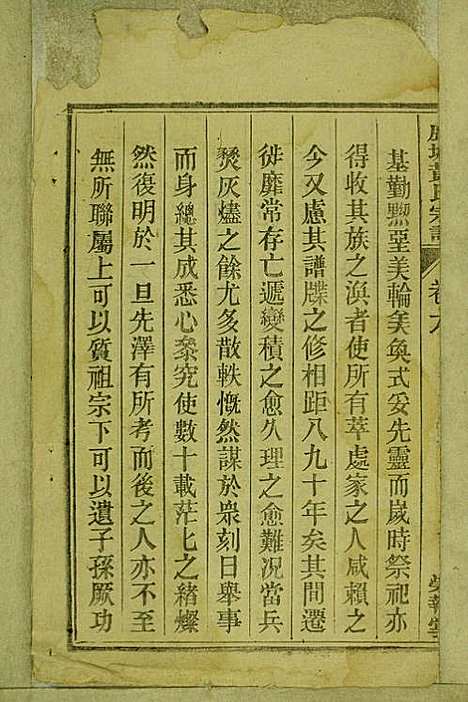 黃氏宗譜
卷六
基勤黝堊美輪美奐式妥先靈而歲時祭祀亦
得收其族之渙者使所有萃處家之人咸賴之
今又慮其譜牒之修相距八九十年矣其間遷
徙靡常存亡遞變積之愈久理之愈難況當兵
燹灰燼之餘尤多散軼慨然謀於衆刻日舉事
而身總其成悉心叅究使數十載茫匕之緒燦
然復明於一旦先澤有所考而後之人亦不至
無所聯屬上可以質祖宗下可以遺子孫厥功